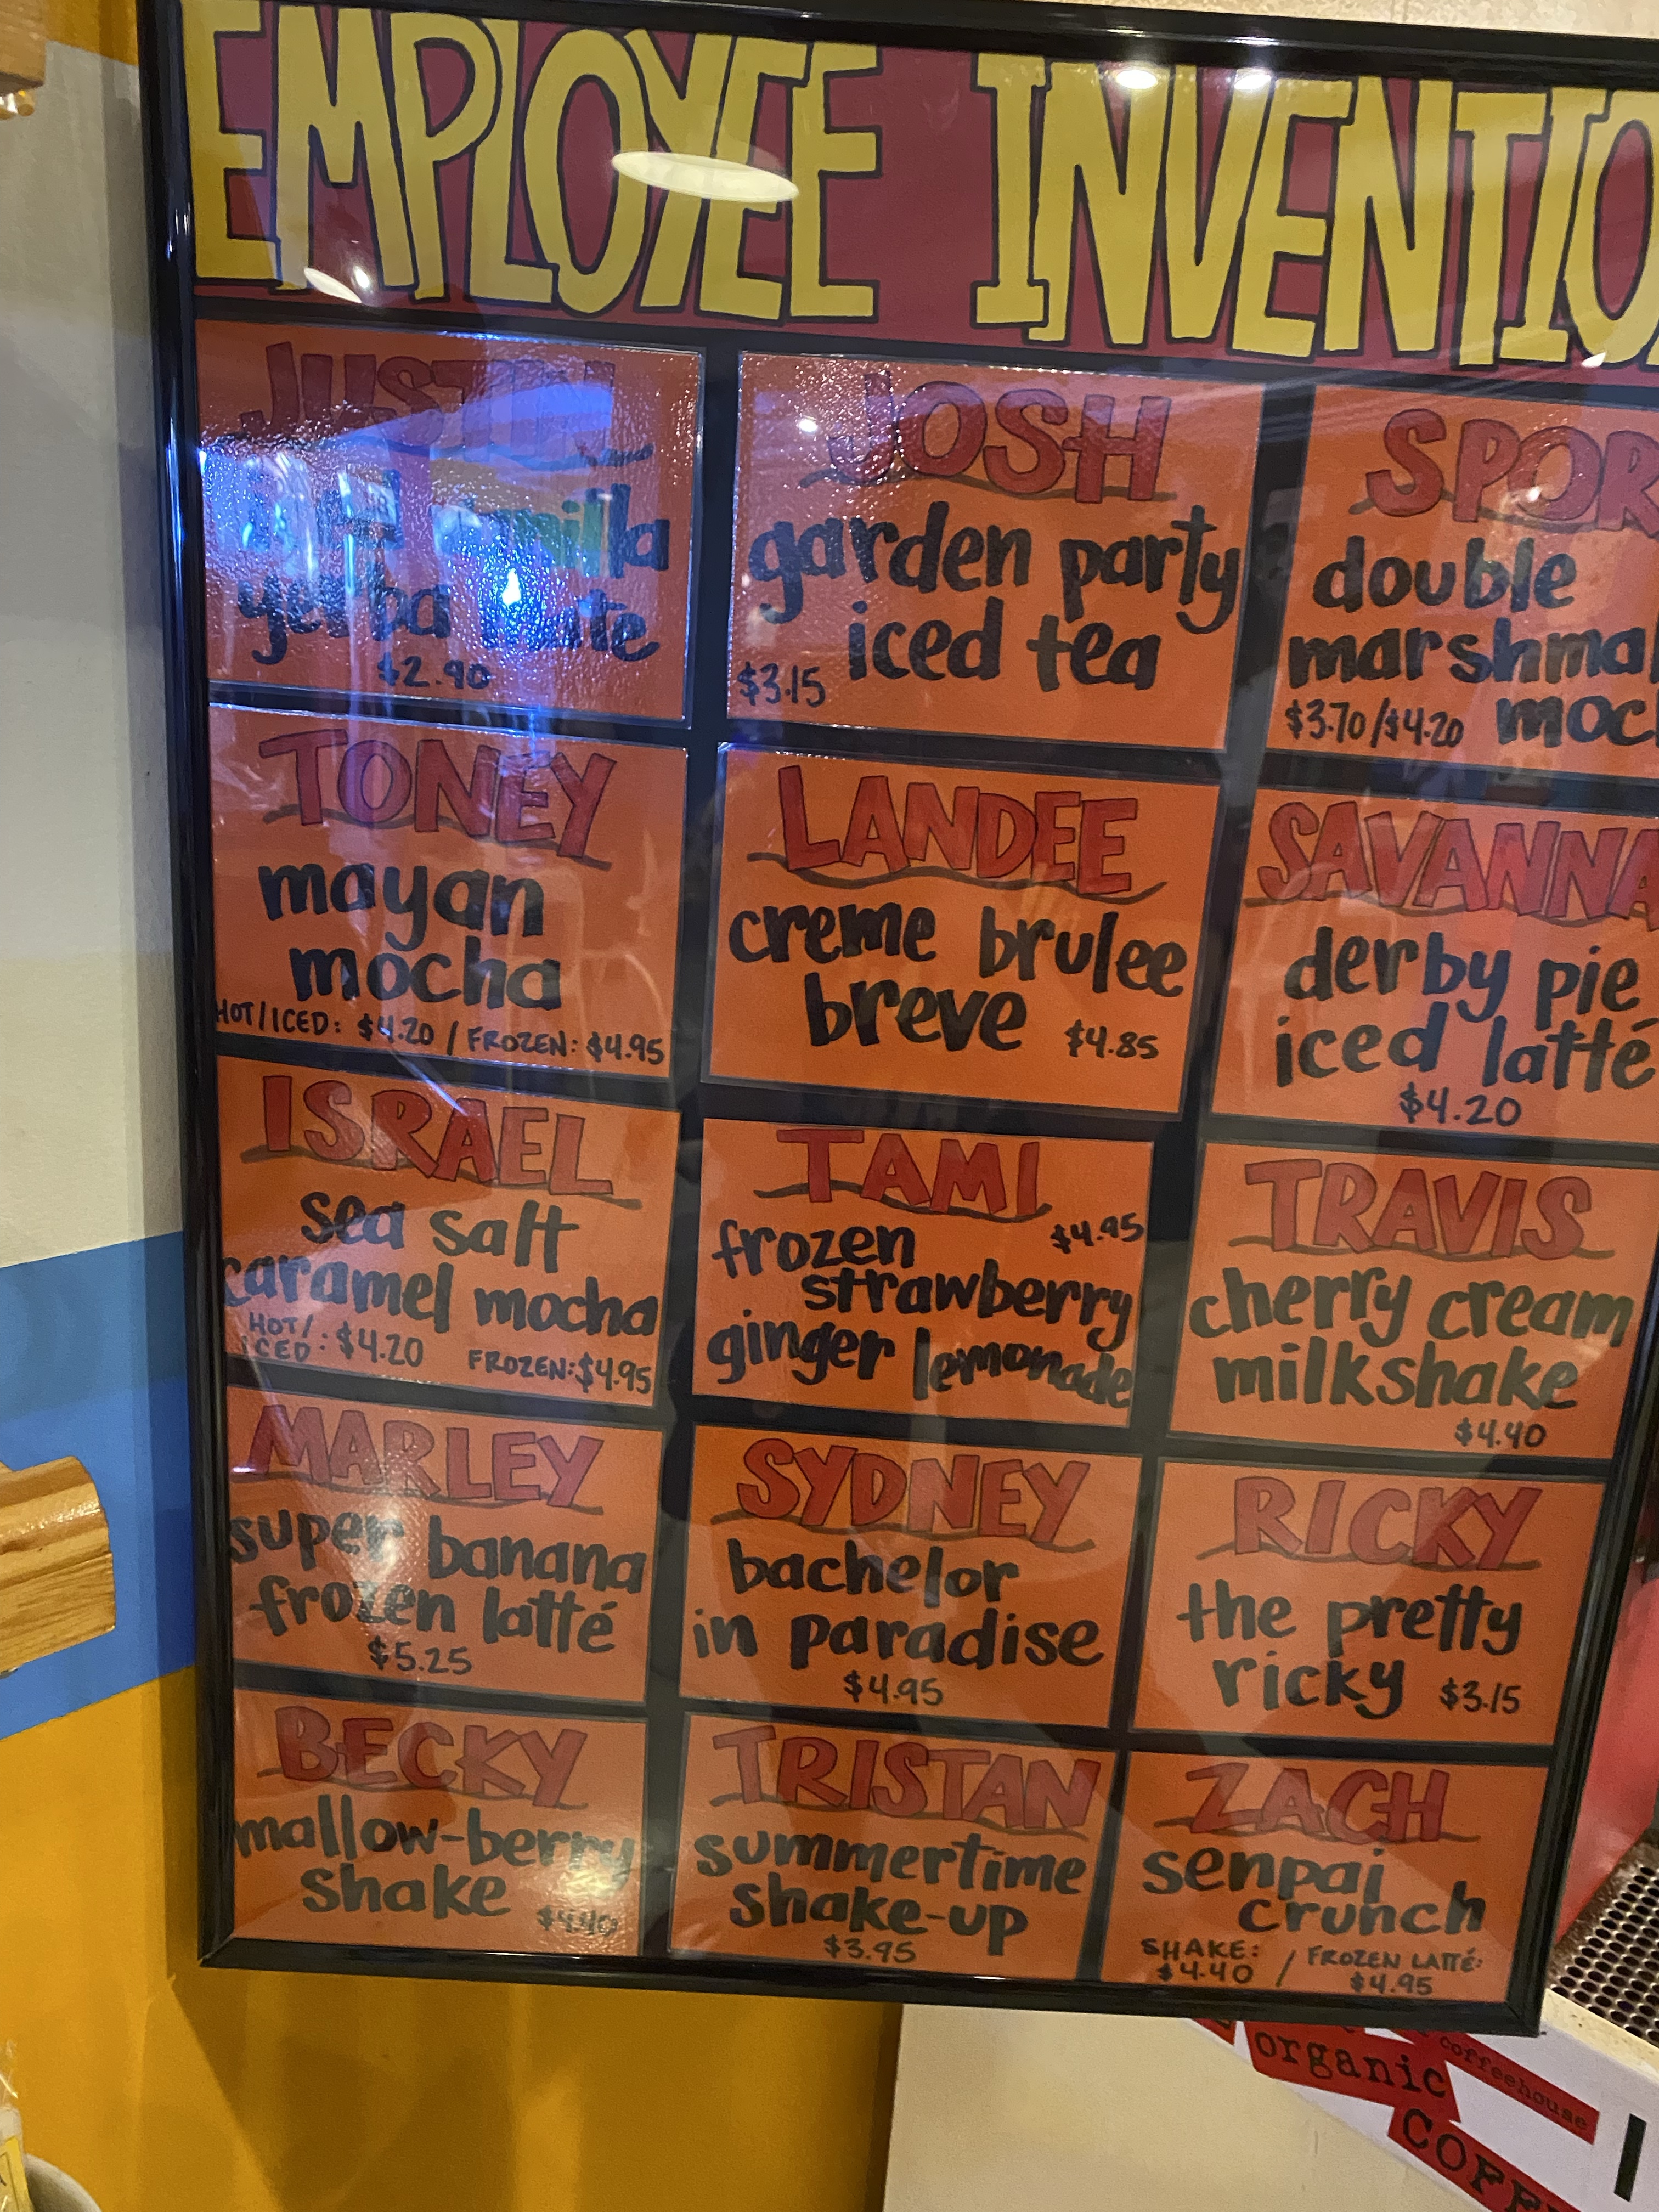 EMPLOYEE INVENTIO
JUSTIN
vanilla
yerba mate
$2.90
JOSH
garden party
iced tea
$3.15
SPOR
double
marshmal
$3.70/$4.20 moc
TONEY
mayan
mocha
HOT/ICED: $4.20 / FROZEN: $4.95
LANDEE
creme brulee
breve $4.85
SAVANNA
derby pie
iced latté
$4.20
ISRAEL
sea salt
caramel mocha
HOT/
ICED: $4.20 FROZEN: $4.95
TAMI
$4.95
frozen
strawberry
ginger lemonade
TRAVIS
cherry cream
milkshake
$4.40
MARLEY
super banana
frozen latté
$5.25
SYDNEY
bachelor
in paradise
$4.95
RICKY
the pretty
ricky $3.15
BECKY
mallow-berry
shake $4.40
TRISTAN
summertime
shake-up
$3.95
ZACH
senpai
crunch
SHAKE: / FROZEN LATTÉ:
$4.40 $4.95
organic
coffeehouse
COFF